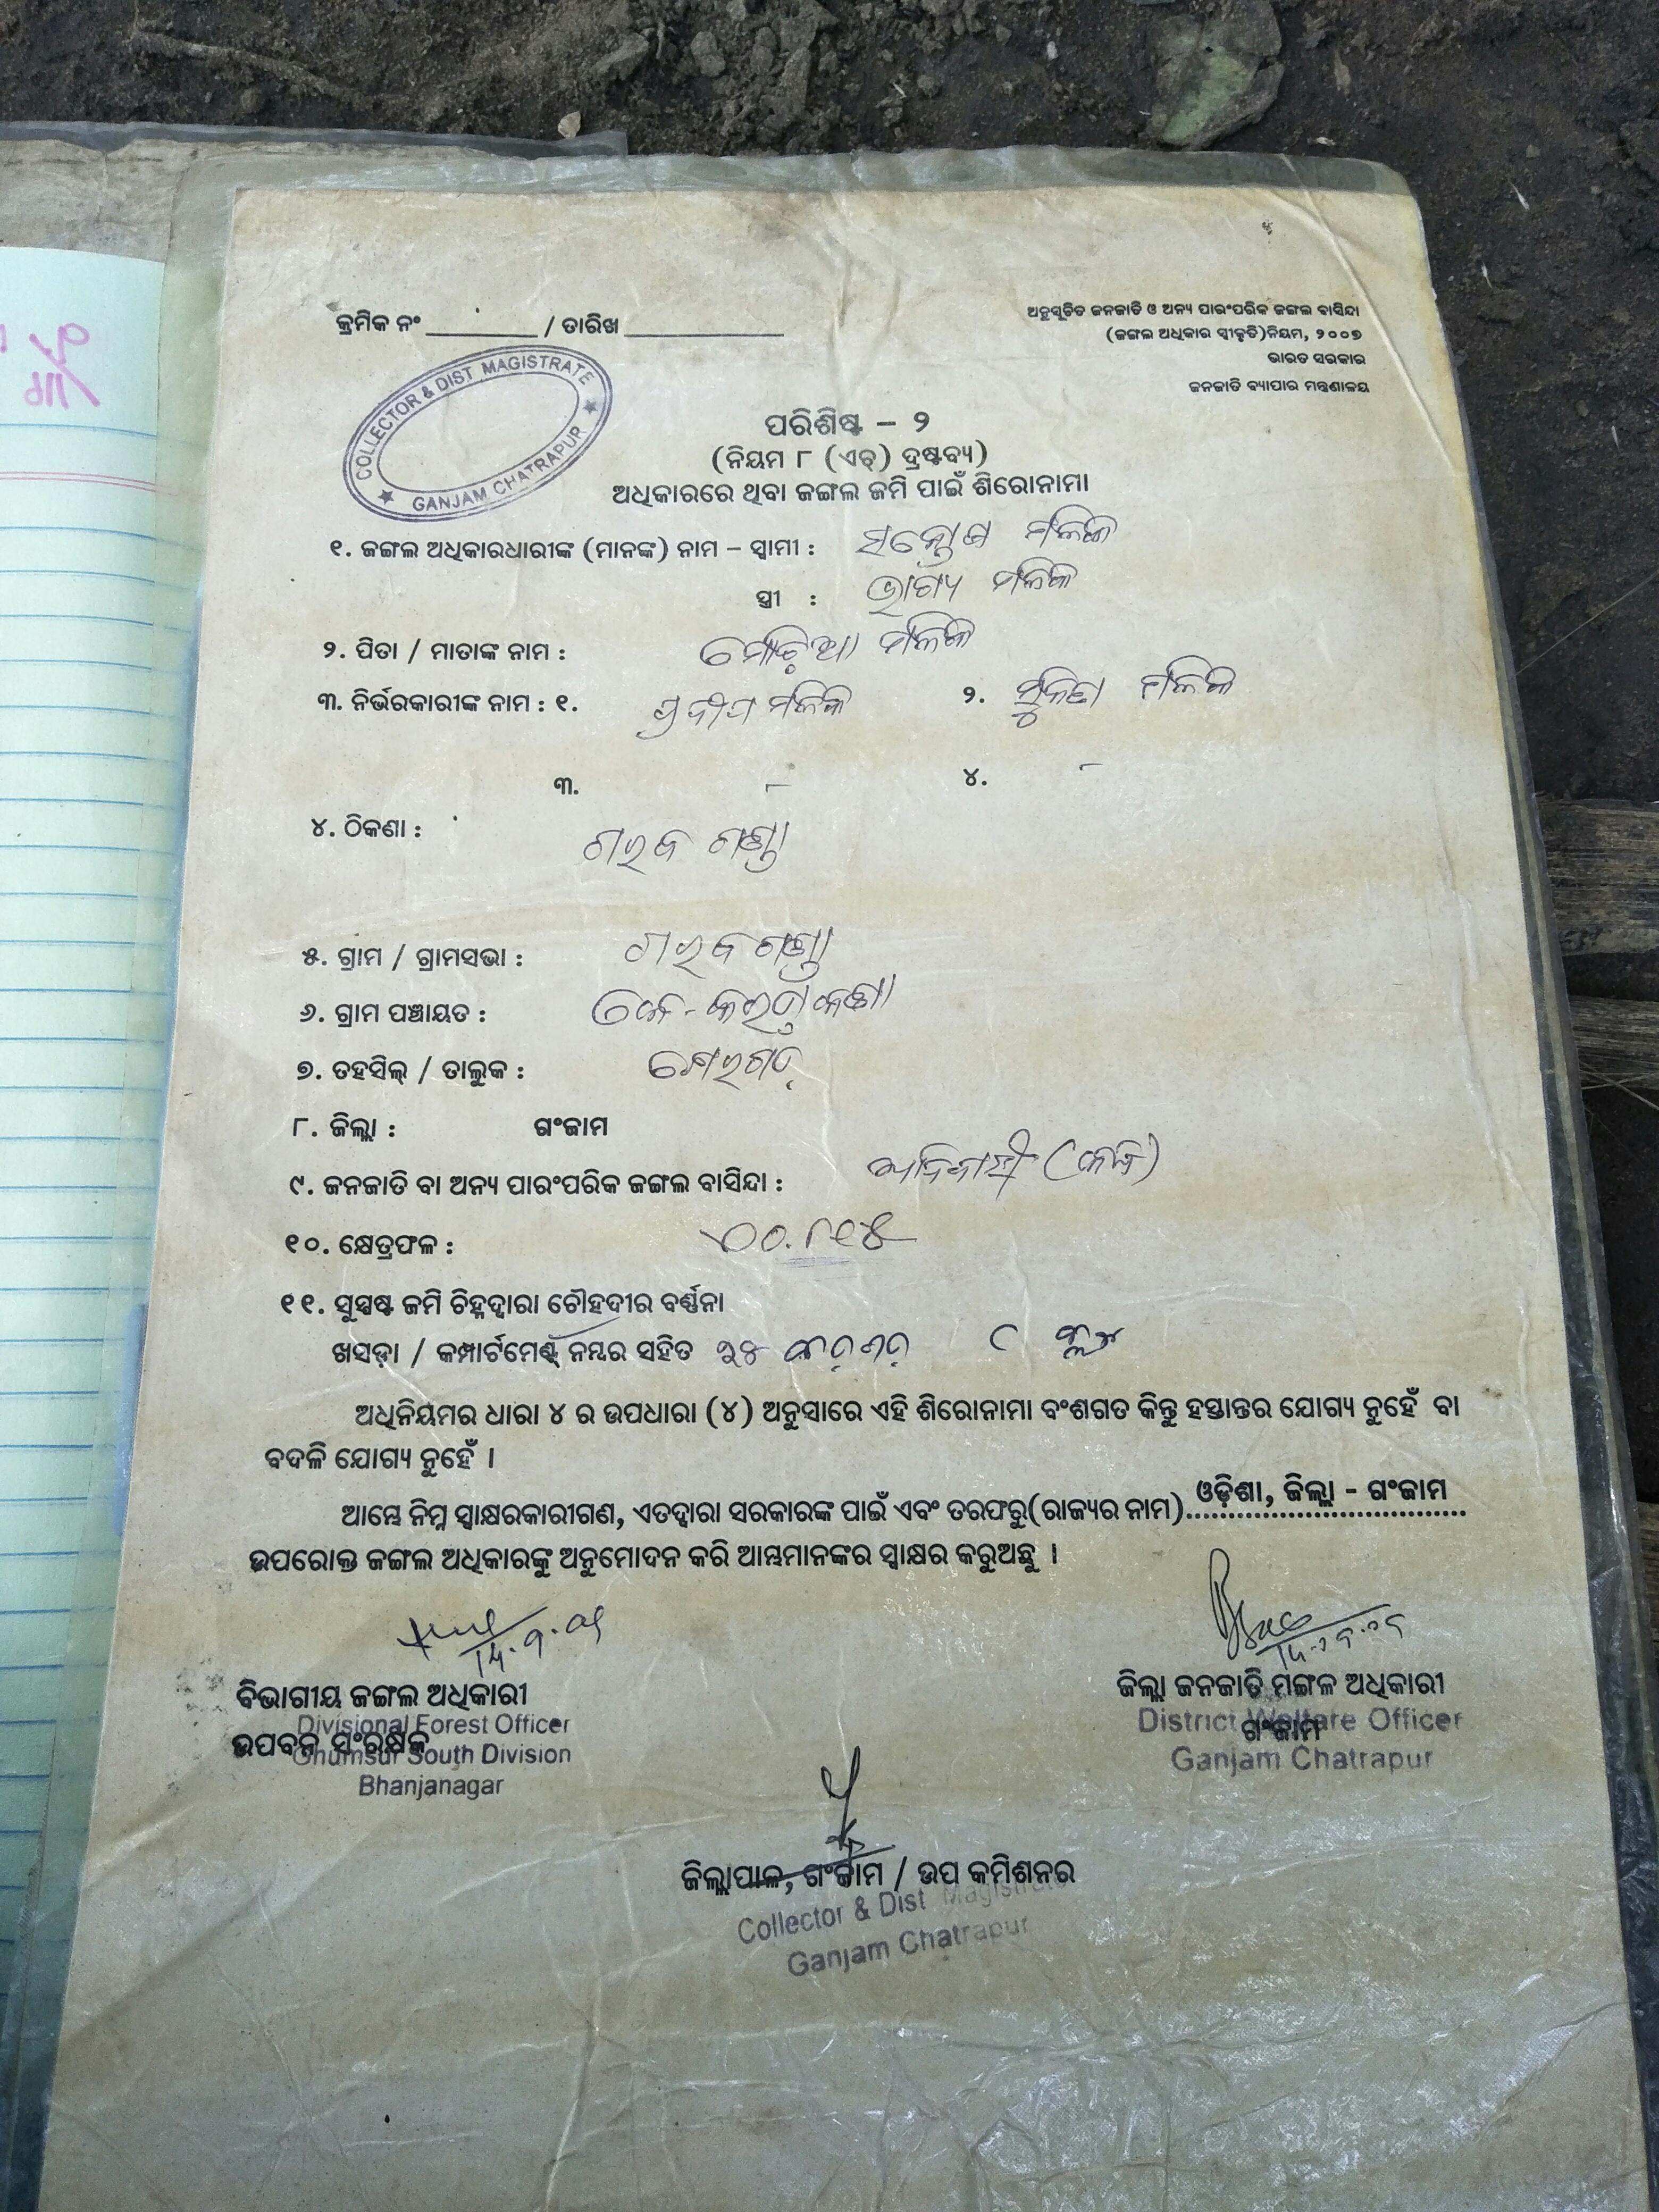 କ୍ରମିକ ନଂ ________ / ତାରିଖ ____________
ଅନୁସୂଚିତ ଜନଜାତି ଓ ଅନ୍ୟ ପାରଂପରିକ ଜଙ୍ଗଲ ବାସିନ୍ଦା
(ଜଙ୍ଗଲ ଅଧିକାର ସ୍ୱୀକୃତି)ନିୟମ, ୨୦୦୭
ଭାରତ ସରକାର
ଜନଜାତି ବ୍ୟାପାର ମନ୍ତ୍ରଣାଳୟ
COLLECTOR & DIST MAGISTRATE
GANJAM CHATRAPUR
ପରିଶିଷ୍ଟ – ୨
(ନିୟମ ୮ (ଏଚ୍) ଦ୍ରଷ୍ଟବ୍ୟ)
ଅଧିକାରରେ ଥିବା ଜଙ୍ଗଲ ଜମି ପାଇଁ ଶିରୋନାମା
୧. ଜଙ୍ଗଲ ଅଧିକାରଧାରୀଙ୍କ (ମାନଙ୍କ) ନାମ – ସ୍ୱାମୀ : ସନ୍ତୋଷ ମଲିକ
ସ୍ତ୍ରୀ : ଭାଗ୍ୟ ମଲିକ
୨. ପିତା / ମାତାଙ୍କ ନାମ : ମଲିକ
୩. ନିର୍ଭରକାରୀଙ୍କ ନାମ : ୧. ମଲିକ ୨. ମଲିକ
୩. – ୪. –
୪. ଠିକଣା :
୫. ଗ୍ରାମ / ଗ୍ରାମସଭା :
୬. ଗ୍ରାମ ପଞ୍ଚାୟତ :
୭. ତହସିଲ୍ / ତାଲୁକ :
୮. ଜିଲ୍ଲା : ଗଂଜାମ
୯. ଜନଜାତି ବା ଅନ୍ୟ ପାରଂପରିକ ଜଙ୍ଗଲ ବାସିନ୍ଦା : ଆଦିବାସୀ
୧୦. କ୍ଷେତ୍ରଫଳ :
୧୧. ସୁସ୍ପଷ୍ଟ ଜମି ଚିହ୍ନଦ୍ୱାରା ଚୌହଦୀର ବର୍ଣ୍ଣନା
ଖସଡ଼ା / କମ୍ପାର୍ଟମେଣ୍ଟ୍ ନମ୍ବର ସହିତ
ଅଧିନିୟମର ଧାରା ୪ ର ଉପଧାରା (୪) ଅନୁସାରେ ଏହି ଶିରୋନାମା ବଂଶଗତ କିନ୍ତୁ ହସ୍ତାନ୍ତର ଯୋଗ୍ୟ ନୁହେଁ ବା
ବଦଳି ଯୋଗ୍ୟ ନୁହେଁ ।
ଆମ୍ଭେ ନିମ୍ନ ସ୍ୱାକ୍ଷରକାରୀଗଣ, ଏତଦ୍ୱାରା ସରକାରଙ୍କ ପାଇଁ ଏବଂ ତରଫରୁ(ରାଜ୍ୟର ନାମ) ଓଡ଼ିଶା, ଜିଲ୍ଲା - ଗଂଜାମ
ଉପରୋକ୍ତ ଜଙ୍ଗଲ ଅଧିକାରଙ୍କୁ ଅନୁମୋଦନ କରି ଆମ୍ଭମାନଙ୍କର ସ୍ୱାକ୍ଷର କରୁଅଛୁ ।
ବିଭାଗୀୟ ଜଙ୍ଗଲ ଅଧିକାରୀ
Divisional Forest Officer
ଉପବନ ସଂରକ୍ଷକ
Ghumsur South Division
Bhanjanagar
ଜିଲ୍ଲା ଜନଜାତି ମଙ୍ଗଳ ଅଧିକାରୀ
District Welfare Officer
ଗଂଜାମ
Ganjam Chatrapur
ଜିଲ୍ଲାପାଳ, ଗଂଜାମ / ଉପ କମିଶନର
Collector & Dist Magistrate
Ganjam Chatrapur